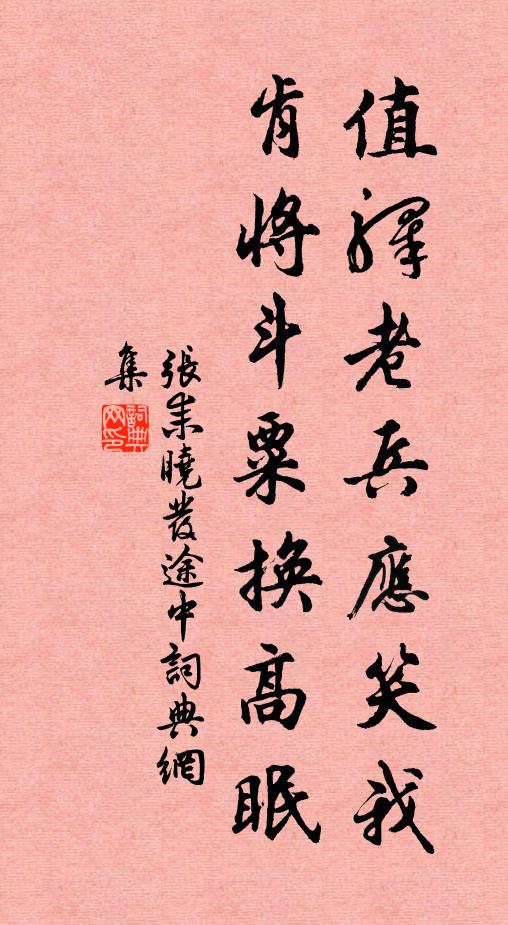 值驛老兵應笑我
肯將斗粟換高眠
張耒曉發途中詞典網
集
詞典
网印